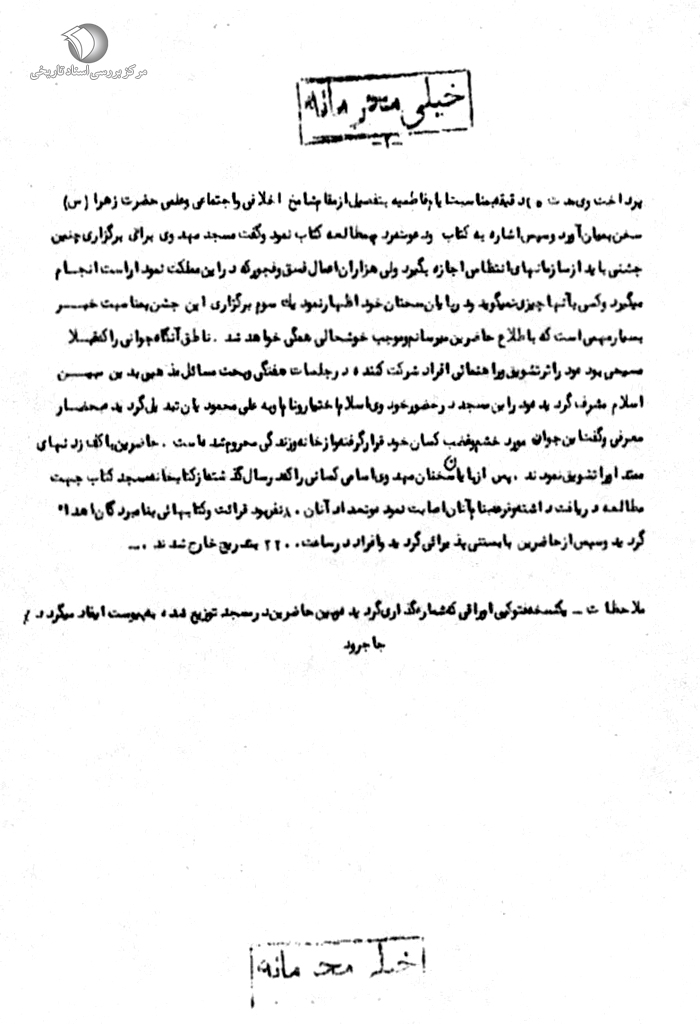 مرکز بررسی اسناد تاریخی
خیلی محرمانه
-۲-
پرداخت وی مدت دقیقه بمناسبت ایام فاطمیه بتفصیل از مقام شامخ اخلاقی و اجتماعی و علمی حضرت زهرا (س)
سخن بمیان آورد و سپس اشاره به کتاب و دعوت مردم بمطالعه کتاب نمود و گفت مسجد مهدوی برای برگزاری چنین
جشنی باید از سازمانهای انتظامی اجازه بگیرد ولی هزاران اعمال فسق و فجور که در این مملکت نمودار است انجام
میگیرد و کسی بآنها چیزی نمیگوید و در پایان سخنان خود اظهار نمود یك سوم برگزاری این جشن بمناسبت خبر
بسیار مهمی است که باطلاع حاضرین میرسانم و موجب خوشحالی همگی خواهد شد . ناطق آنگاه جوانی را که قبلا
مسیحی بوده و در اثر تشویق و راهنمائی افراد شرکت کننده در جلسات هفتگی و بحث مسائل مذهبی بدین مبین
اسلام مشرف گردیده و در این مسجد در حضور خود وی اسلام اختیار و نام او به علی محمودیان تبدیل گردیده بحضار
معرفی و گفت این جوان مورد خشم و غضب کسان خود قرار گرفته و از خانه و زندگی محروم شده است . حاضرین با کف زدنهای
ممتد او را تشویق نمودند . پس از پایان سخنان مهدوی اسامی کسانی را که در سال گذشته از کتابخانه مسجد کتاب جهت
مطالعه دریافت داشته و قرعه بنام آنان اصابت نموده و تعداد آنان ۸۰ نفر بود قرائت و کتابهائی بنامبردگان اهداء
گردید و سپس از حاضرین با بستنی پذیرائی گردید و افراد در ساعت ۲۲۰۰ بتدریج خارج شدند .
ملاحظات - یکنسخه فتوکپی اوراقی که شماره گذاری گردیده و بین حاضرین در مسجد توزیع شده بپیوست ایفاد میگردد
جاجرود
خیلی محرمانه